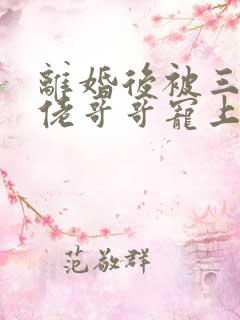 離婚後被三
佬哥哥寵上
范敬群